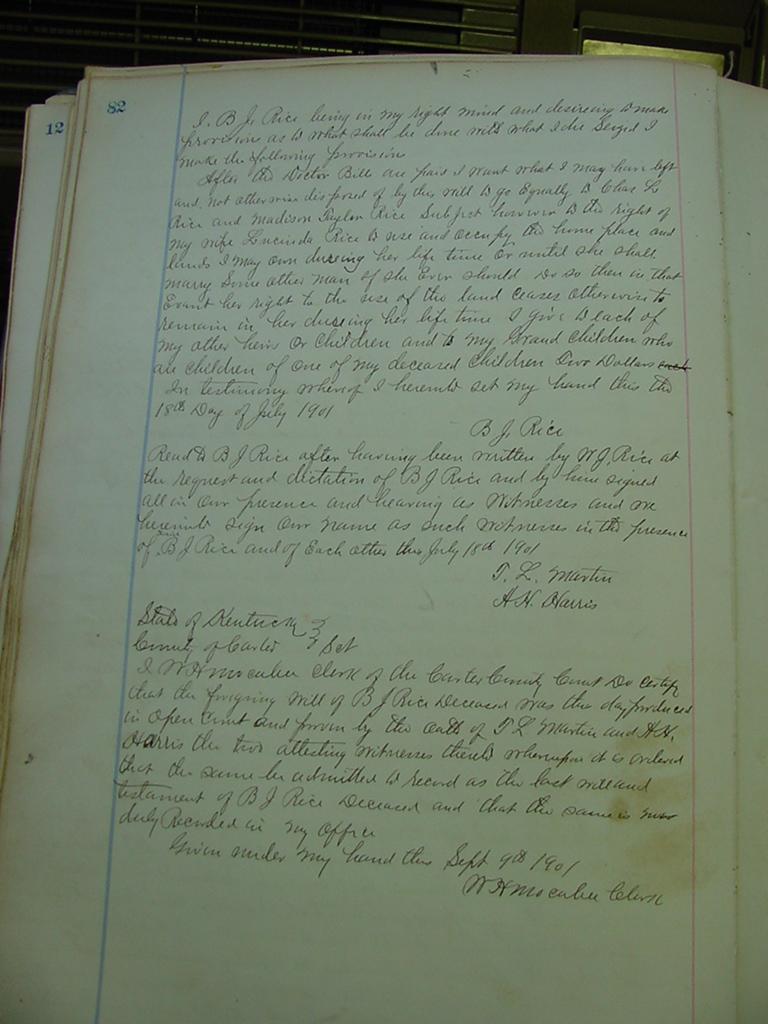 82
12
I. B J. Rice being in my right mind and desireing to make
provision as to what shall be done with what I die Seized I
make the following provision
After the Doctor Bills are paid I want what I may have left
and not otherwise disposed of by this will to go Equally to Chas
Rice and Madison Taylor Rice Subject however to the right of
my wife Lucinda Rice to use and occupy the home place and
lands I may own dureing her life time Or until she shall
marry Some other man if she Ever should Do so then in that
Event her right to the use of the land ceases otherwise to
remain in her dureing her life time I give to each of
my other heirs Or Children and to my Grand Children who
are children of One of my deceased Children Two Dollars each
In testimony whereof I hereunto set my hand this the
18th Day of July 1901
B J. Rice
Read to B J Rice after having been written by W J. Rice at
the request and dictation of B J Rice and by him signed
all in Our presence and hearing as Witnesses and we
hereunto sign Our name as such Witnesses in the presence
of B J Rice and of Each other this July 18th 1901
T. L. Martin
A H. Harris
State of Kentucky
County of Carter } Sct
I W H Clerk of the Carter County Court Do certify
that the foregoing Will of B J Rice Deceased was this day produced
in Open Court and proven by the Oath of T L Martin and A H.
Harris the two attesting Witnesses thereto whereupon it is ordered
that the same be admitted to record as the last will and
testament of B J Rice Deceased and that the same is now
duly Recorded in my Office
Given under my hand this Sept 9th 1901
W H Clerk